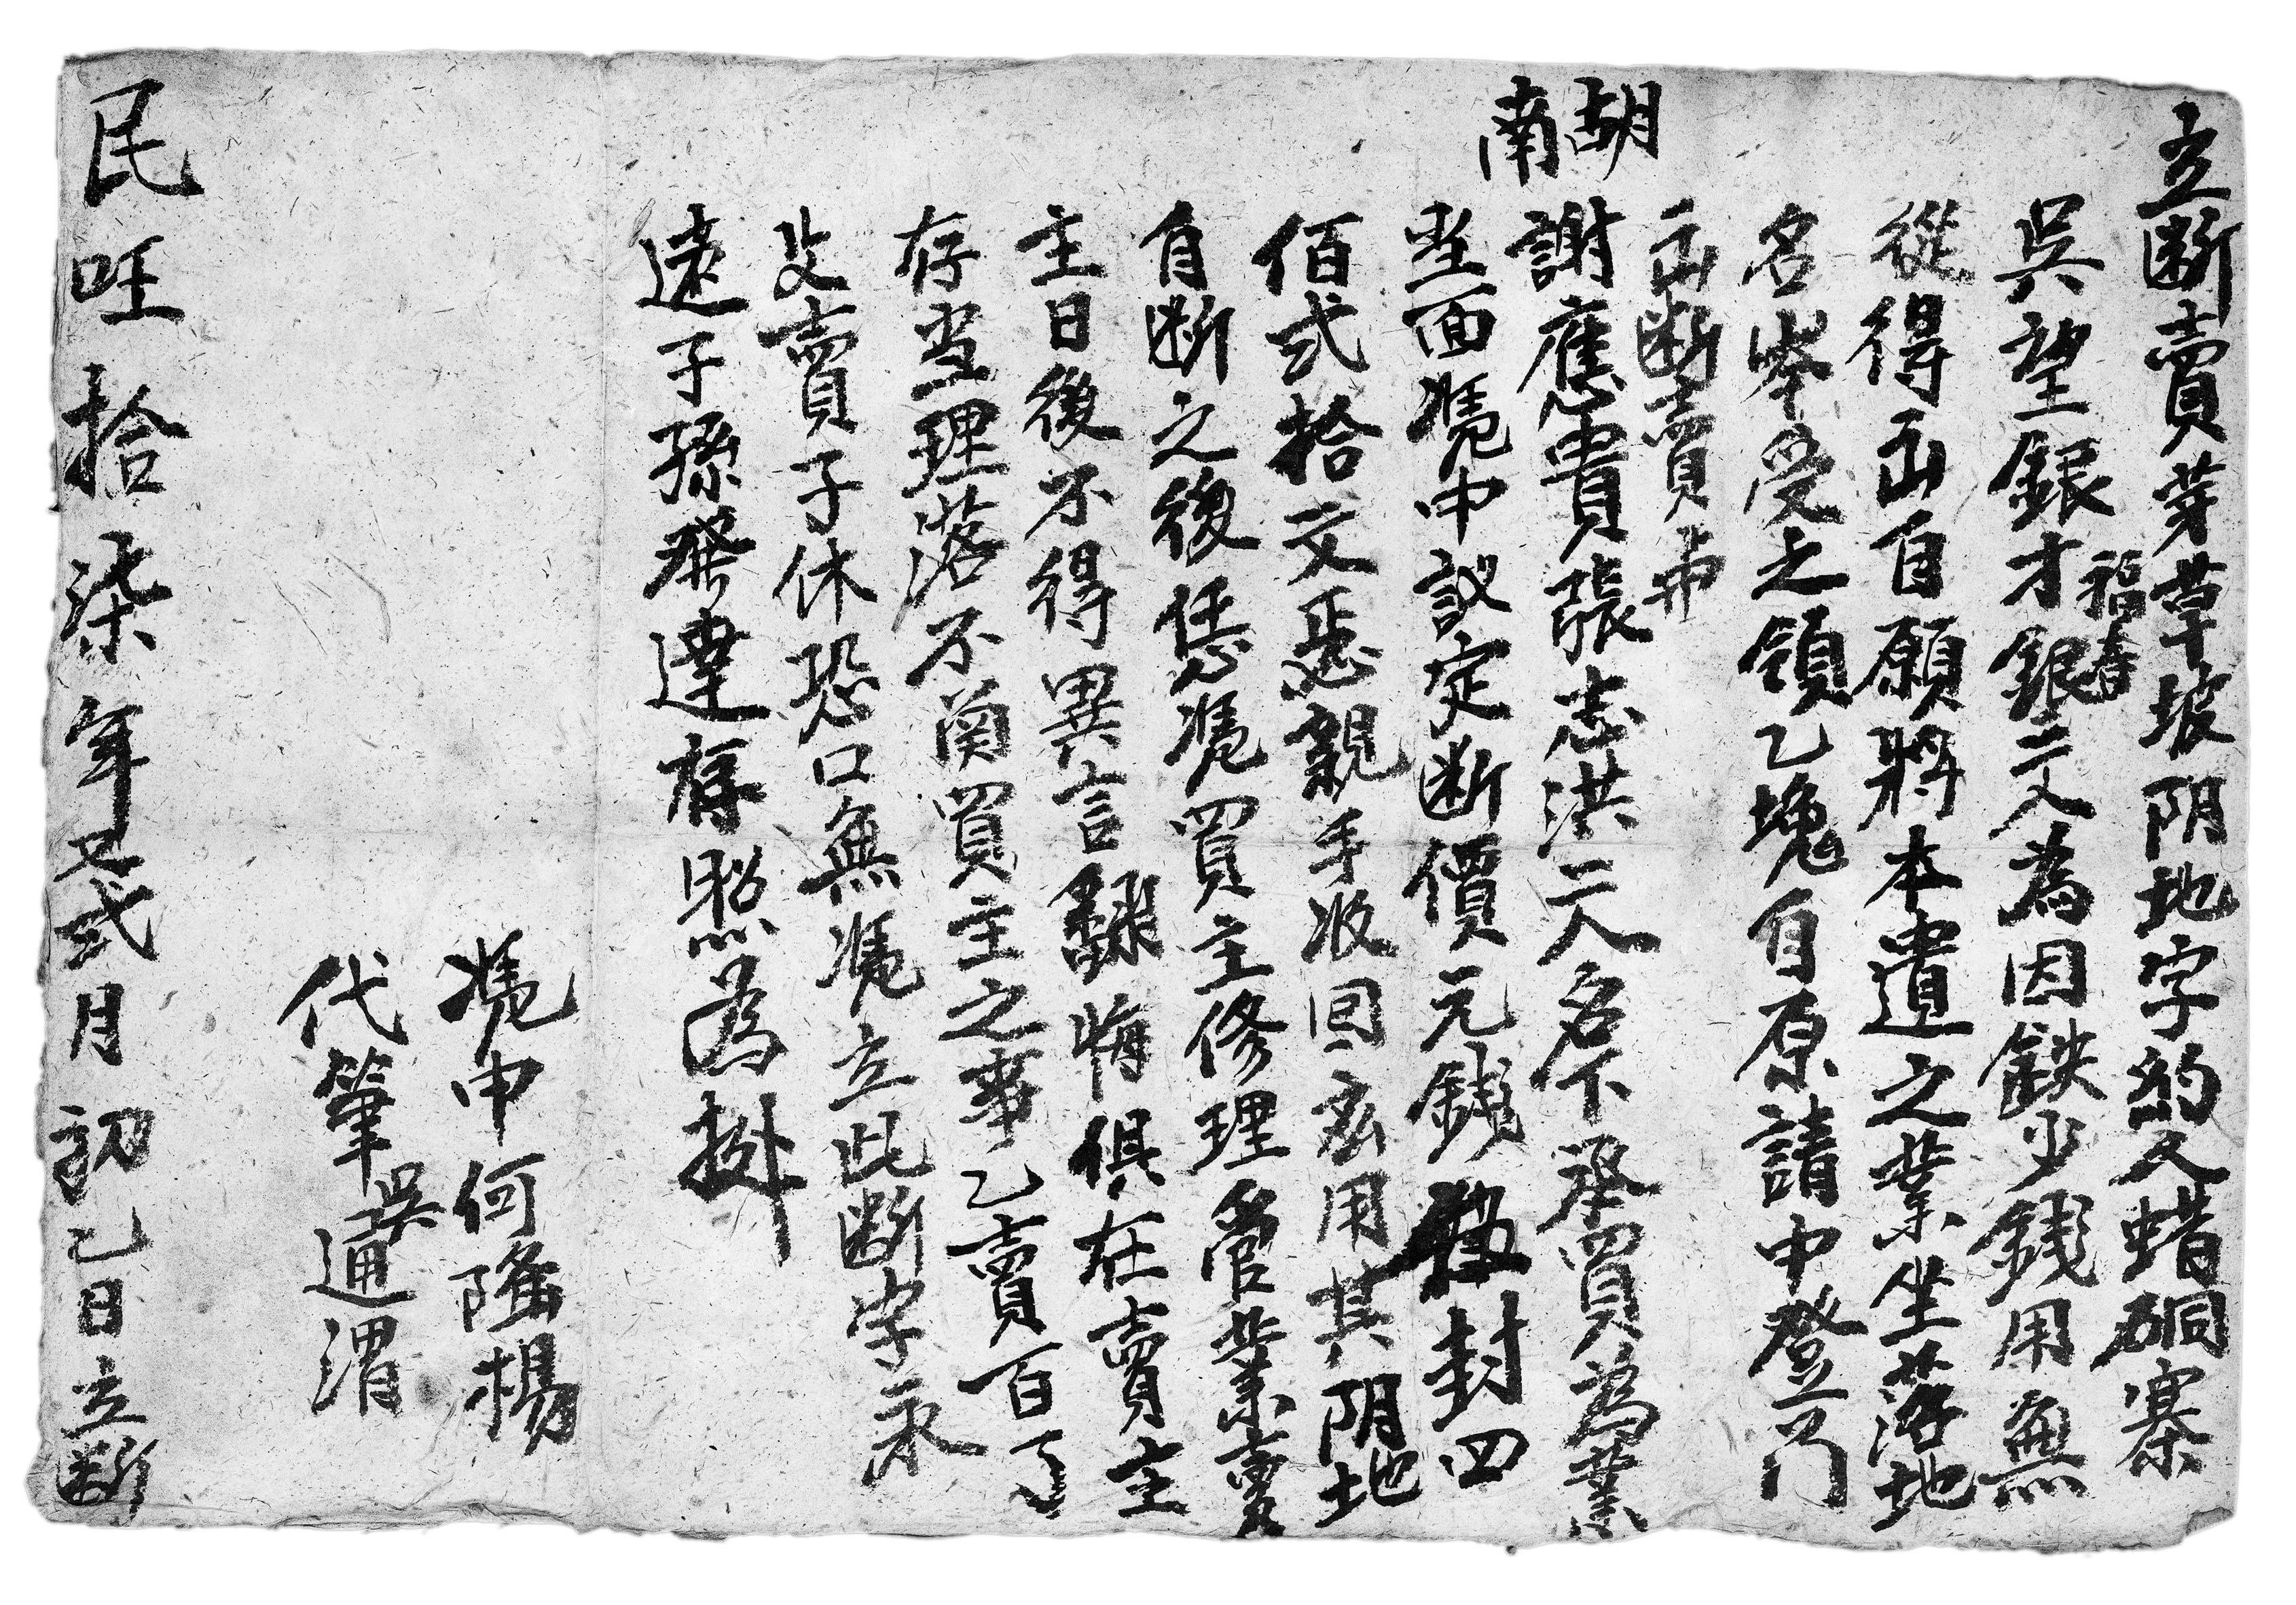 立断賣芽草坡阴地字約人蜡硐寨
吳望銀才銀福春二人為因缺少錢用無
從得出自願將本遺之業坐落地
名岑受之領乙塊自原請中登门
出断賣與
胡南
謝應貴張志洪二人名下承買為業
當面憑中議定断價元錢封四
佰弍拾文整親手收回应用其阴地
自断之後恁憑買主修理管業賣
主日後不得異言翻悔俱在賣主
存當理落不関買主之事乙賣百了
父賣子休恐口無憑立此断字永
遠子孫發達存照為㨿
憑中何隆楊
代筆吳通渭
民国拾柒年又弍月初乙日立断